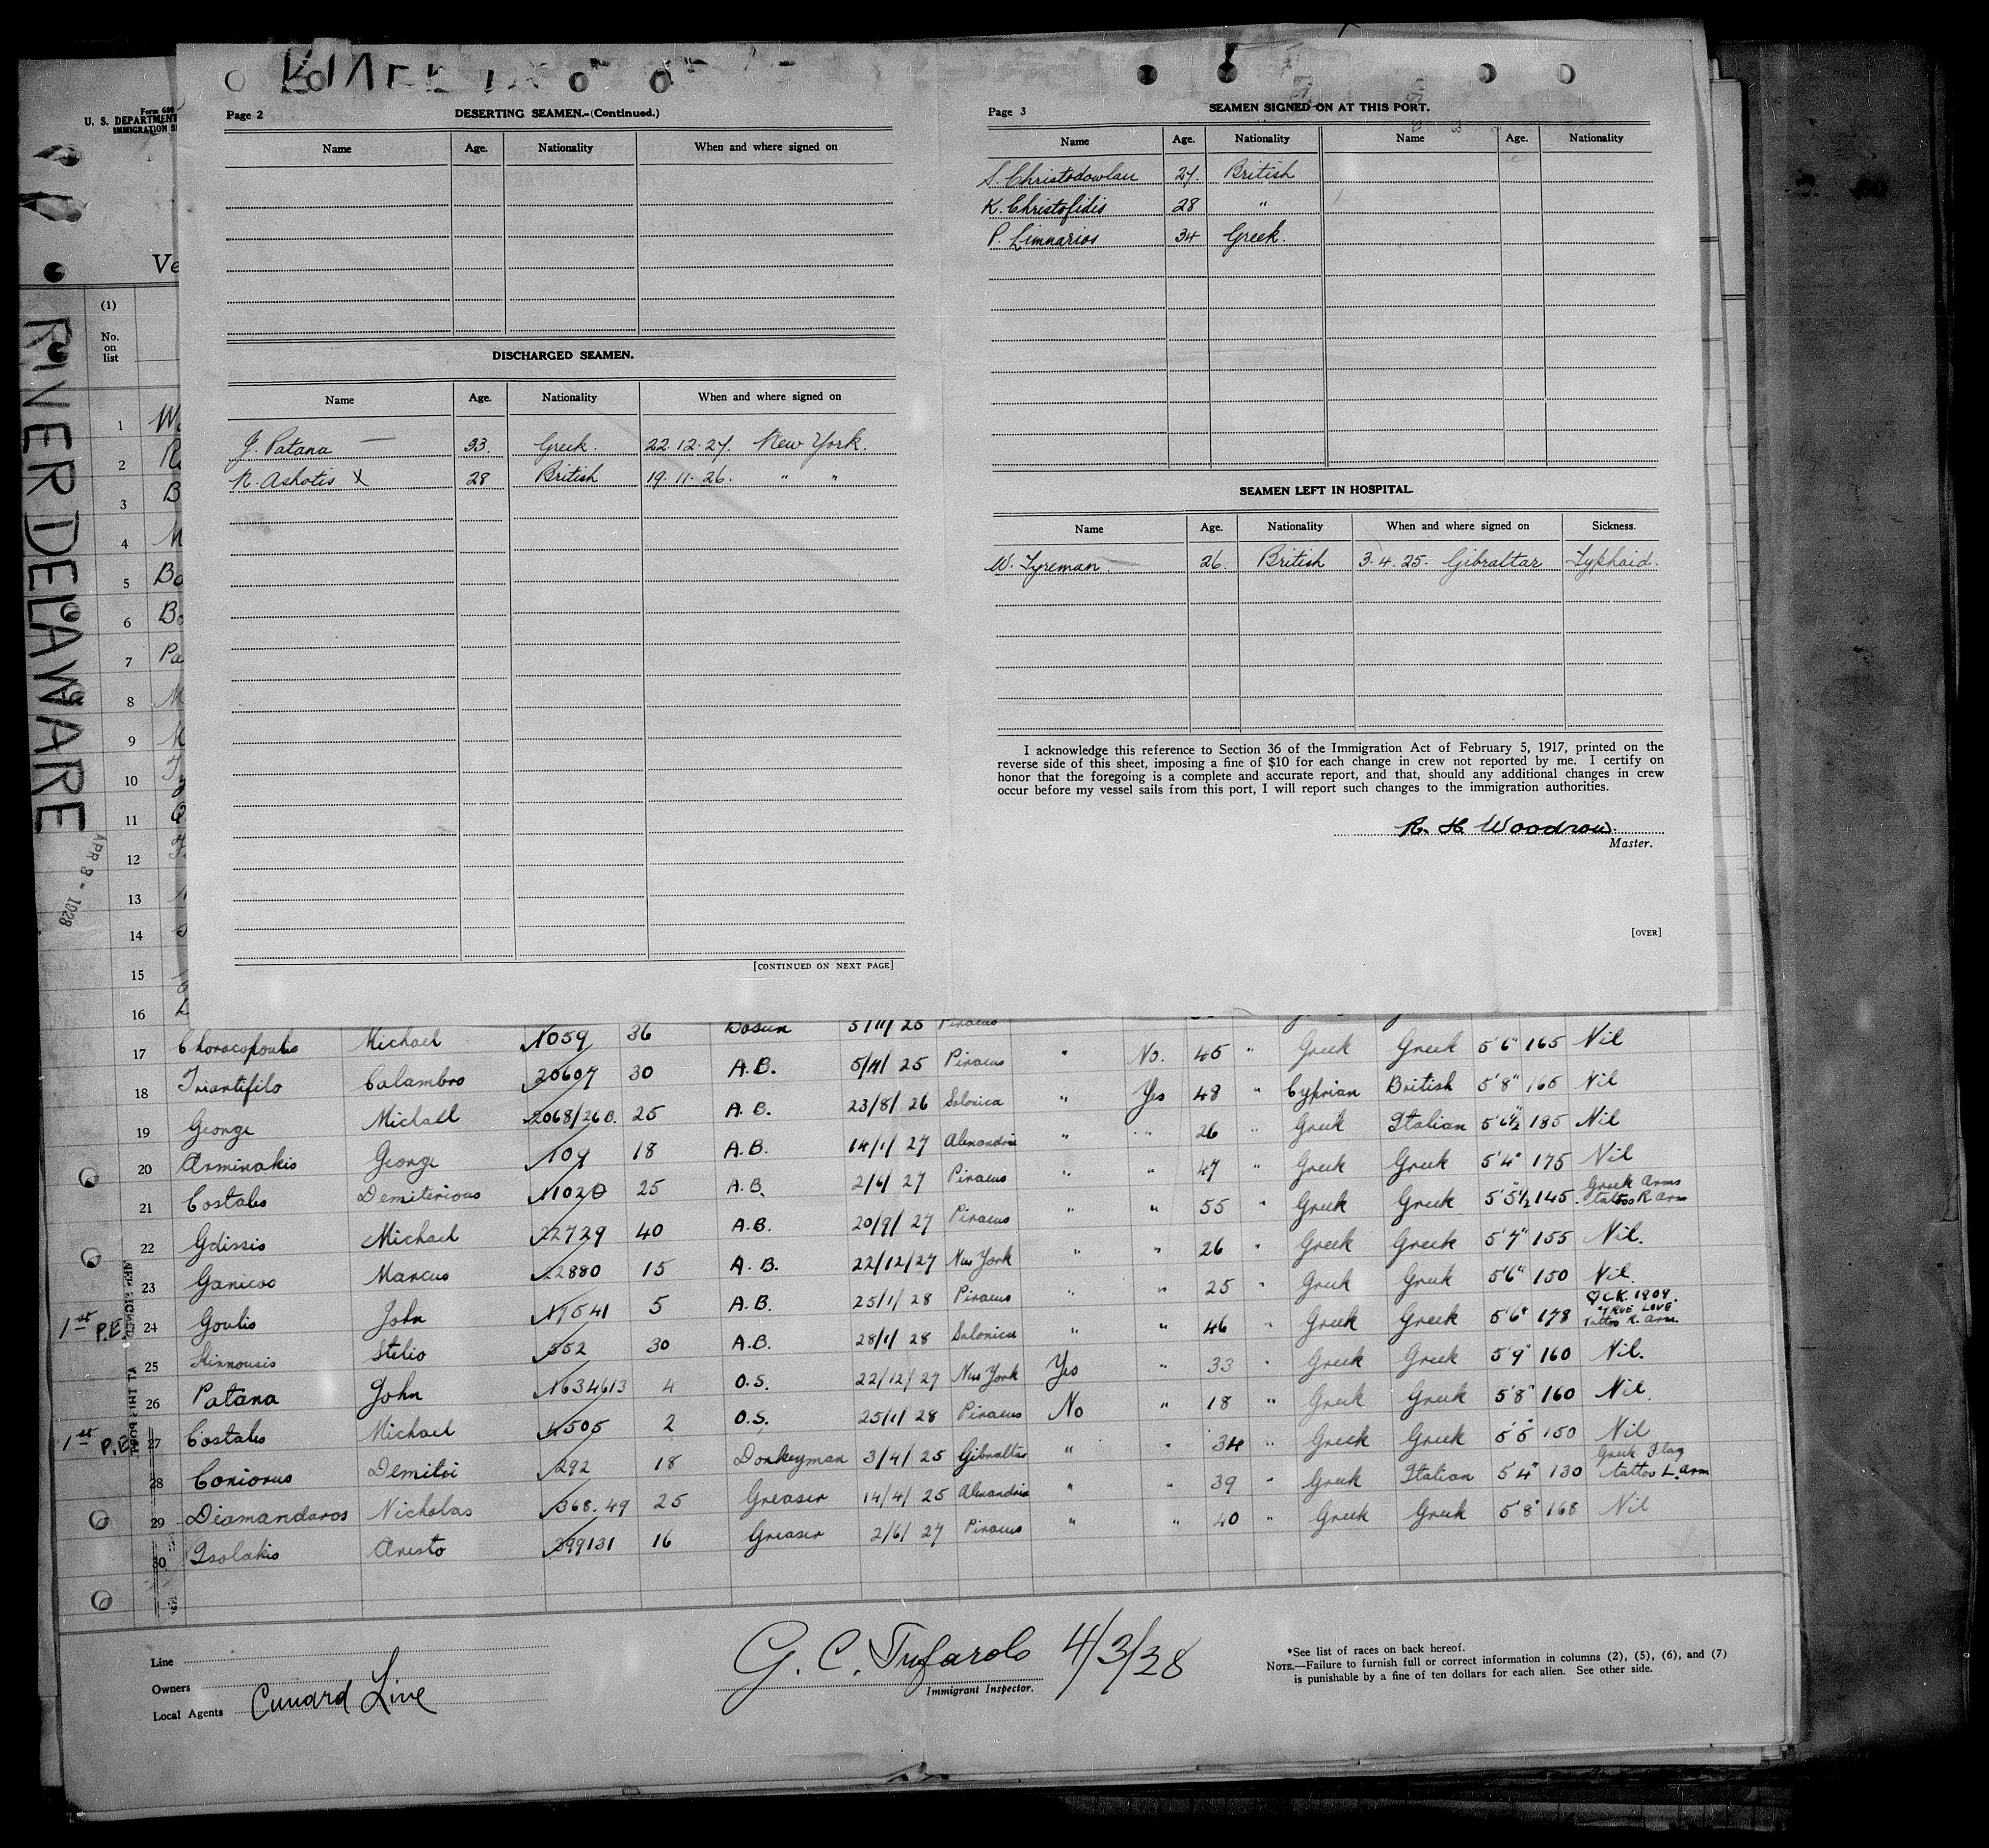 Form 680
U. S. DEPARTMENT
IMMIGRATION
Ve
(1)
No.
on
list
RIVER DELAWARE
APR 8 - 1928
Page 2
DESERTING SEAMEN.-(Continued.)
Name Age. Nationality When and where signed on
DISCHARGED SEAMEN.
Name Age. Nationality When and where signed on
J. Patana — 33. Greek. 22.12.27. New York.
N. Ashotis X 28 British 19.11.26. " "
[CONTINUED ON NEXT PAGE]
Page 3
SEAMEN SIGNED ON AT THIS PORT.
Name Age. Nationality Name Age. Nationality
S. Christodowlau 27. British
K. Christofidis 28 "
P. Limnarios 34 Greek.
SEAMEN LEFT IN HOSPITAL.
Name Age. Nationality When and where signed on Sickness.
W. Tyreman. 26. British 3.4.25. Gibraltar Typhoid.
I acknowledge this reference to Section 36 of the Immigration Act of February 5, 1917, printed on the
reverse side of this sheet, imposing a fine of $10 for each change in crew not reported by me. I certify on
honor that the foregoing is a complete and accurate report, and that, should any additional changes in crew
occur before my vessel sails from this port, I will report such changes to the immigration authorities.
R. H. Woodrow.
Master.
[OVER]
1
2
3
4
5
6
7
8
9
10
11
12
13
14
15
16
17 Choracopoulis Michael 1059 36 Bosun 5/11/25 Piraeus
18 Triantifilo Calambro 20607 30 A.B. 5/11/25 Piraeus " No. 45 " Greek Greek 5'6" 165 Nil
19 George Michall 2068/26B. 25 A.B. 23/8/26 Salonica " Yes 48 " Cyprian British 5'8" 165 Nil
20 Arminakis George 109 18 A.B. 14/1/27 Alexandria " " 26 " Greek Italian 5'6½" 185 Nil
21 Costales Demiterious 11020 25 A.B. 2/6/27 Piraeus " " 47 " Greek Greek 5'4" 175 Nil
22 Gdissis Michael 22729 40 A.B. 20/9/27 Piraeus " " 55 " Greek Greek 5'5½ 145. Greek Arms tattoo R Arm
23 Ganicos Marcus 22880 15 A.B. 22/12/27 New York " " 26 " Greek Greek 5'7" 155 Nil.
1st P.E. 24 Goulis John 17541 5 A.B. 25/1/28 Piraeus " " 25 " Greek Greek 5'6" 150 Nil.
25 Kinnousis Stelio 552 30 A.B. 28/1/28 Salonica " " 46 " Greek Greek 5'6" 178 C.K. 1909. "TRUE LOVE" Tattoo R. Arm
26 Patana John 1634613 4 O.S. 22/12/27 New York Yes " 33 " Greek Greek 5'9" 160 Nil.
1st P.E. 27 Costales Michael 4505 2 O.S. 25/1/28 Piraeus No " 18 " Greek Greek 5'8" 160 Nil.
28 Coniorus Demitri 292 18 Donkeyman 3/4/25 Gibraltar " " 34 " Greek Greek 5'5" 150 Nil
29 Diamandaros Nicholas 368.49 25 Greaser 14/4/25 Alexandria " " 39 " Greek Italian 5'4" 130 Greek Flag tattoo L. arm
30 Tsolakis Aristo 399131 16 Greaser 2/6/27 Piraeus " " 40 " Greek Greek 5'8" 168 Nil
Line
Owners
Local Agents Cunard Line
G. C. Tufarolo 4/3/28
Immigrant Inspector.
*See list of races on back hereof.
NOTE.—Failure to furnish full or correct information in columns (2), (5), (6), and (7)
is punishable by a fine of ten dollars for each alien. See other side.